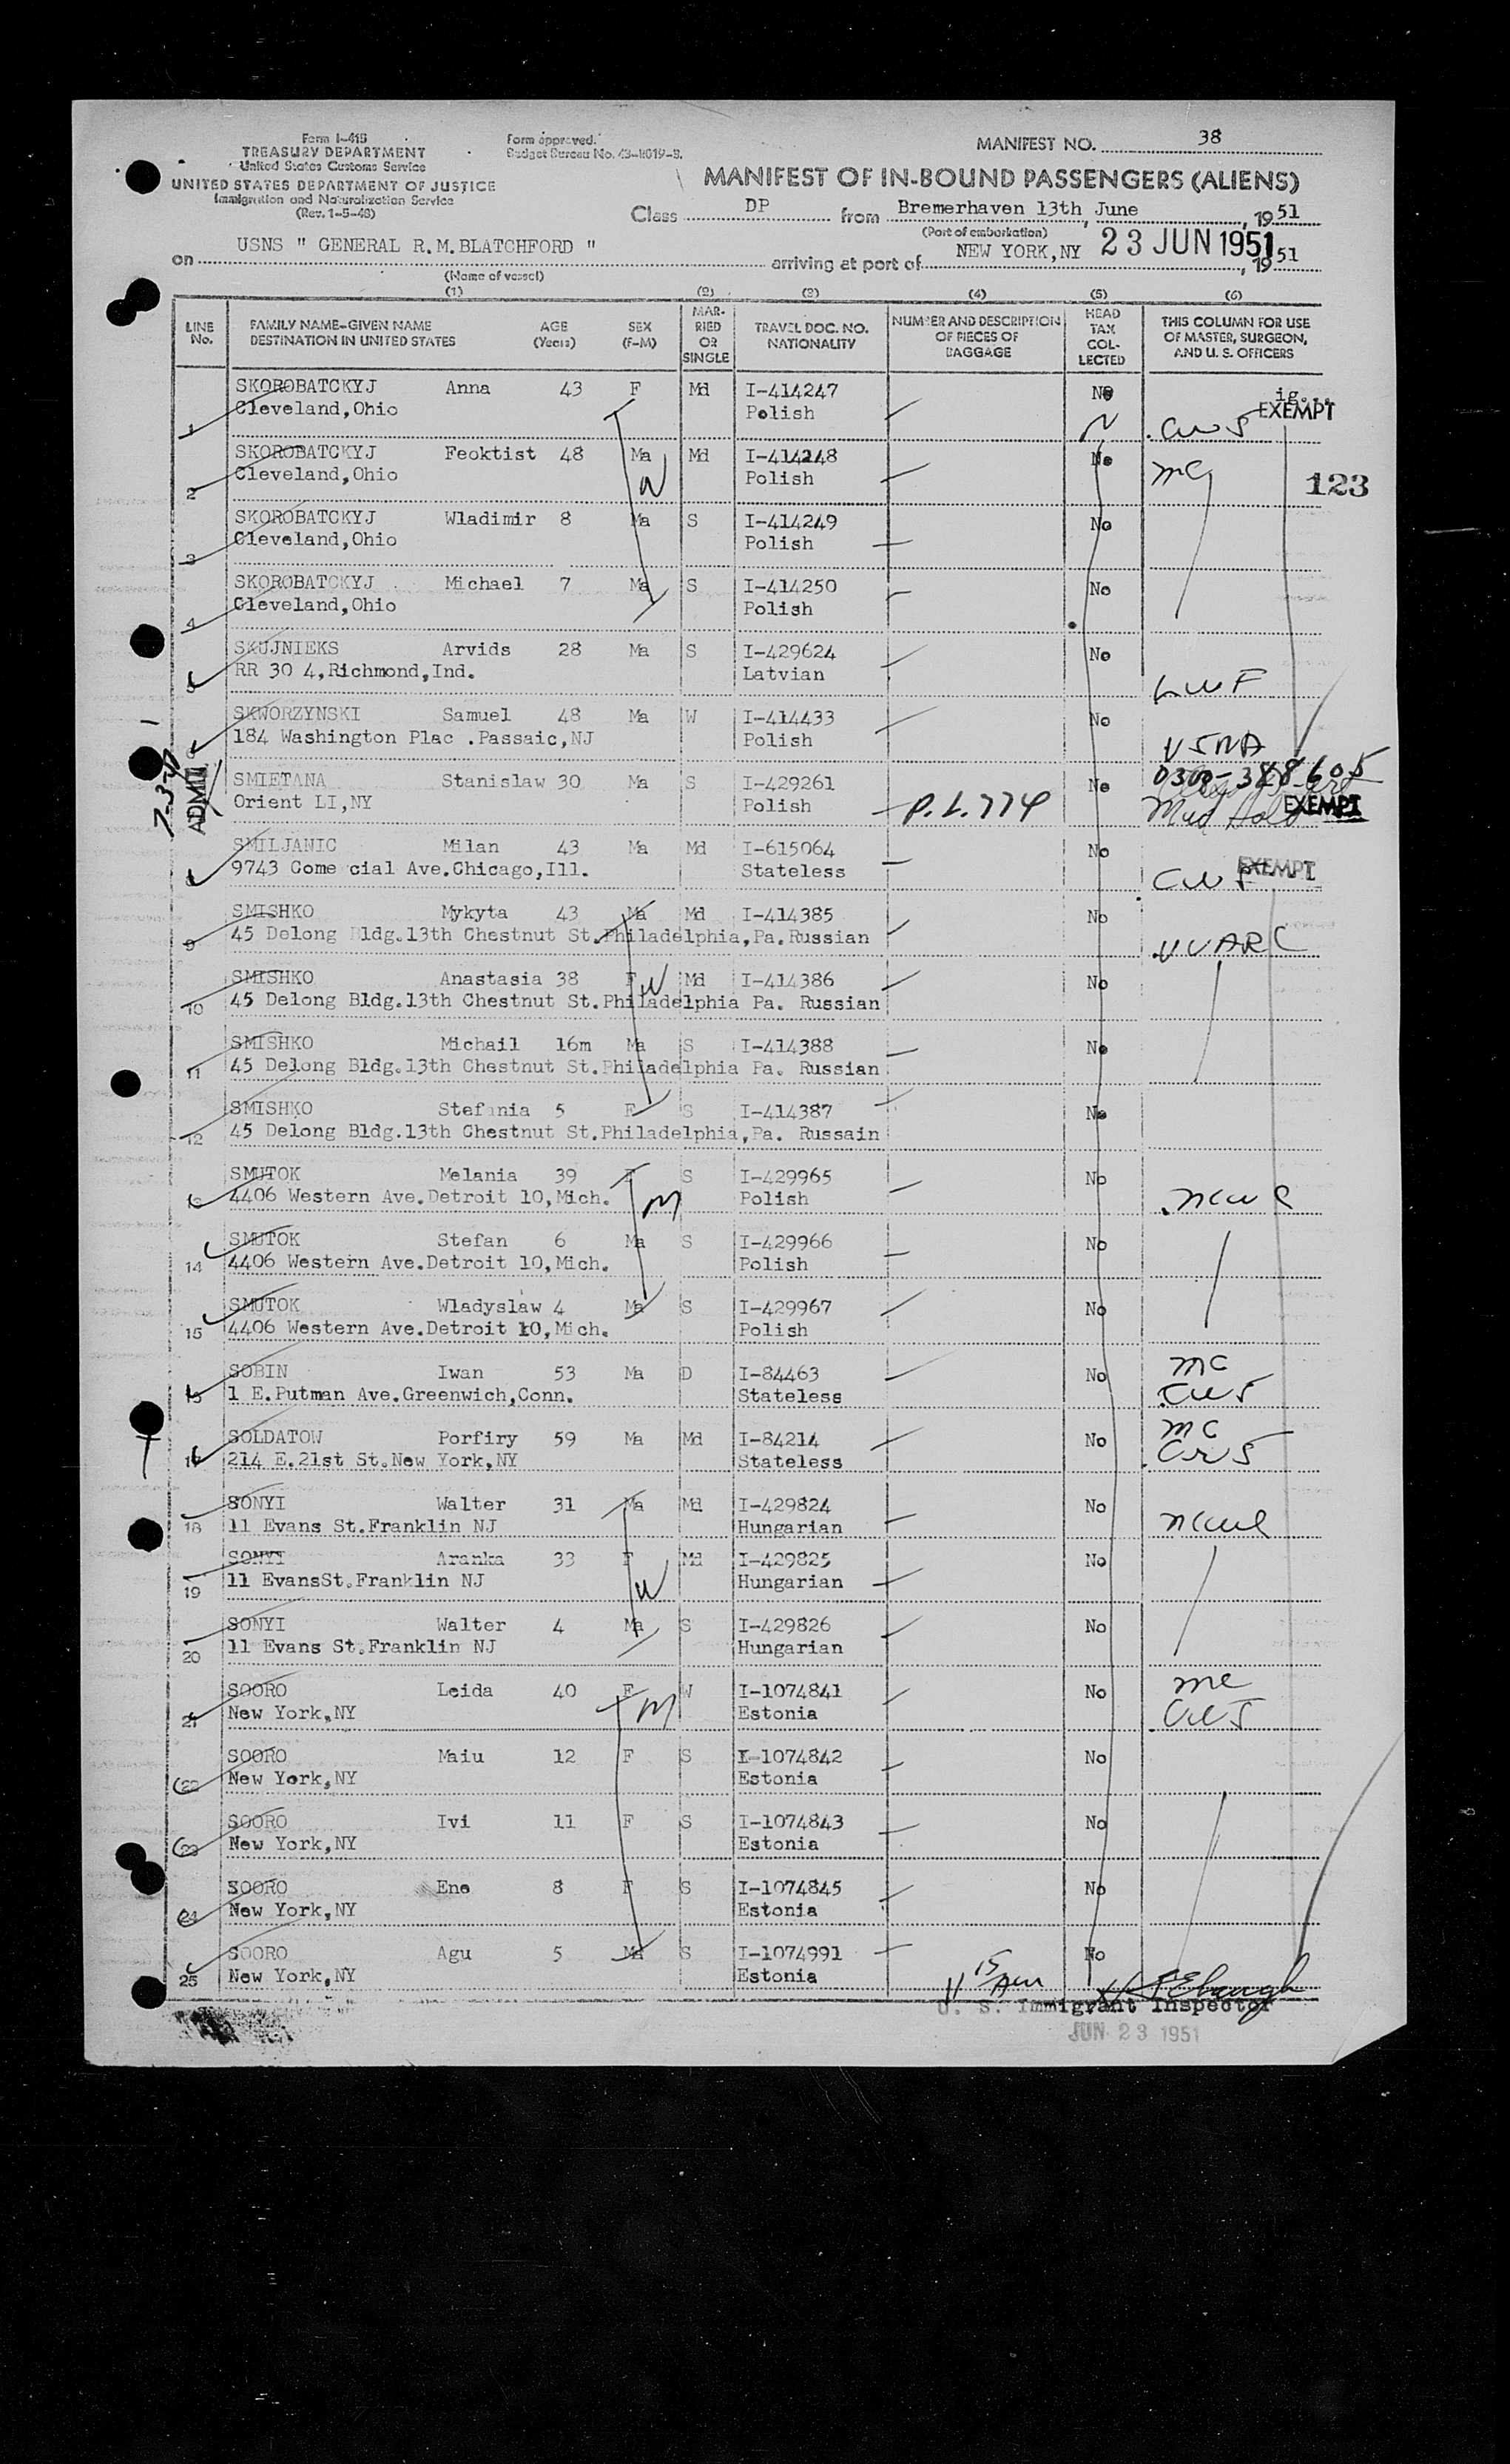 Form I-415
TREASURY DEPARTMENT
United States Customs Service
UNITED STATES DEPARTMENT OF JUSTICE
Immigration and Naturalization Service
(Rev. 1-5-48)
Form approved.
Budget Bureau No. 43-R019-3.
MANIFEST NO. 38
MANIFEST OF IN-BOUND PASSENGERS (ALIENS)
Class DP from Bremerhaven 13th, June, 1951
(Port of embarkation)
on USNS " GENERAL R.M.BLATCHFORD " arriving at port of NEW YORK,NY 23 JUN 1951, 1951
(Name of vessel)
(1) (2) (3) (4) (5) (6)
LINE No. FAMILY NAME-GIVEN NAME DESTINATION IN UNITED STATES AGE (Years) SEX (F-M) MARRIED OR SINGLE TRAVEL DOC. NO. NATIONALITY NUMBER AND DESCRIPTION OF PIECES OF BAGGAGE HEAD TAX COLLECTED THIS COLUMN FOR USE OF MASTER, SURGEON, AND U. S. OFFICERS
1 SKOROBATCKYJ Anna 43 F Md I-414247 No EXEMPT
Cleveland,Ohio Polish CWS
2 SKOROBATCKYJ Feoktist 48 Ma Md I-414248 No MC 123
Cleveland,Ohio Polish
3 SKOROBATCKYJ Wladimir 8 Ma S I-414249 No
Cleveland,Ohio Polish
4 SKOROBATCKYJ Michael 7 Ma S I-414250 No
Cleveland,Ohio Polish
5 SKUJNIEKS Arvids 28 Ma S I-429624 No
RR 30 4,Richmond,Ind. Latvian LWF
SKWORZYNSKI Samuel 48 Ma W I-414433 No
184 Washington Plac .Passaic,NJ Polish USNA
ADMIT SMIETANA Stanislaw 30 Ma S I-429261 No 0300-388605
Orient LI,NY Polish P.L.774 Med Hold EXEMPT
SMILJANIC Milan 43 Ma Md I-615064 No
9743 Come cial Ave.Chicago,Ill. Stateless CWS EXEMPT
9 SMISHKO Mykyta 43 Ma Md I-414385 No
45 Delong Bldg.13th Chestnut St.Philadelphia,Pa.Russian UUARC
10 SMISHKO Anastasia 38 F Md I-414386 No
45 Delong Bldg.13th Chestnut St.Philadelphia Pa. Russian
11 SMISHKO Michail 16m Ma S I-414388 No
45 Delong Bldg.13th Chestnut St.Philadelphia Pa. Russian
12 SMISHKO Stefania 5 F S I-414387 No
45 Delong Bldg.13th Chestnut St.Philadelphia,Pa. Russain
13 SMUTOK Melania 39 F S I-429965 No
4406 Western Ave.Detroit 10,Mich. M Polish NCWC
14 SMUTOK Stefan 6 Ma S I-429966 No
4406 Western Ave.Detroit 10,Mich. Polish
15 SMUTOK Wladyslaw 4 Ma S I-429967 No
4406 Western Ave.Detroit 10,Mich. Polish
SOBIN Iwan 53 Ma D I-84463 No MC
1 E.Putman Ave.Greenwich,Conn. Stateless CWS
17 SOLDATOW Porfiry 59 Ma Md I-84214 No MC
214 E.21st St.New York,NY Stateless CWS
18 SONYI Walter 31 Ma Md I-429824 No
11 Evans St.Franklin NJ Hungarian NCWC
19 SONYI Aranka 33 F Md I-429825 No
11 EvansSt.Franklin NJ Hungarian
20 SONYI Walter 4 Ma S I-429826 No
11 Evans St.Franklin NJ Hungarian
21 SOORO Leida 40 F W I-1074841 No MC
New York,NY M Estonia CWS
22 SOORO Maiu 12 F S I-1074842 No
New York,NY Estonia
23 SOORO Ivi 11 F S I-1074843 No
New York,NY Estonia
24 SOORO Ene 8 F S I-1074845 No
New York,NY Estonia
25 SOORO Agu 5 Ma S I-1074991 No
New York,NY Estonia
11 15 AM
U. S. Immigrant Inspector
JUN 23 1951